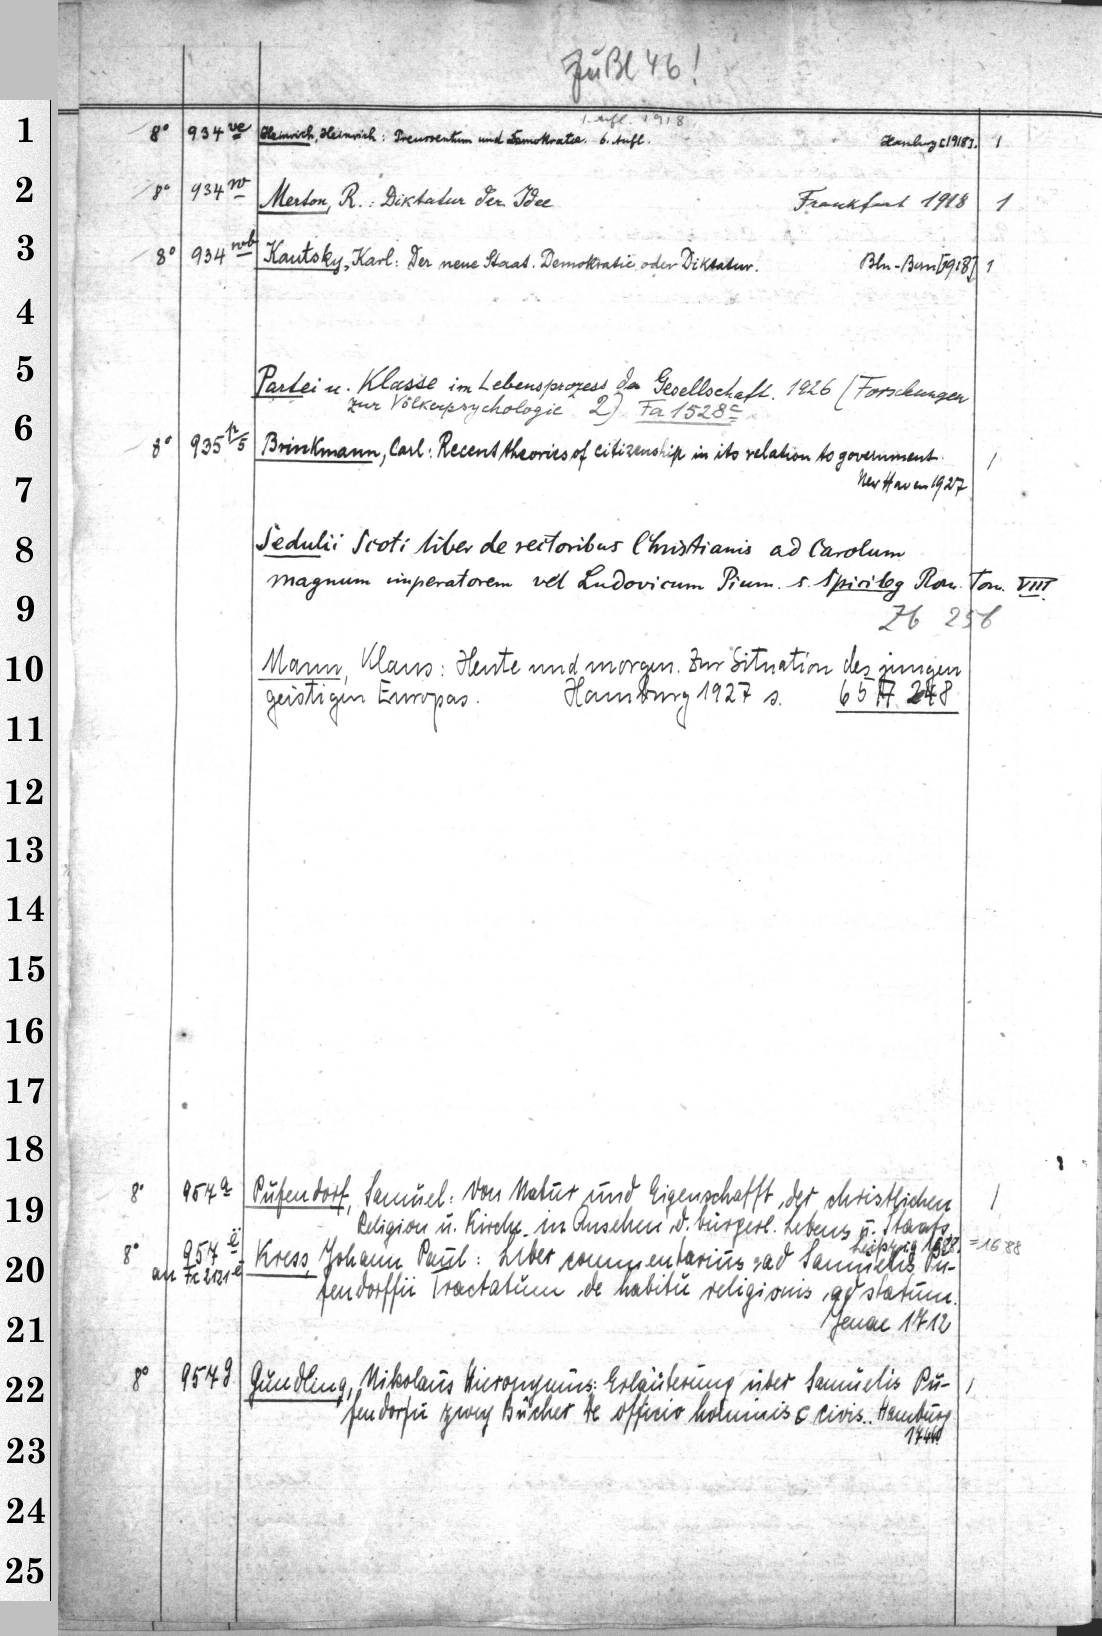 Zu Bl 46!
1. Aufl. 1918.
1 8° 934 ve Heinrich, Heinrich: Preussentum und Demokratie. 6. Aufl. Hamburg [1918]. 1
2 8° 934 w Merton, R.: Diktatur der Idee Frankfurt 1918 1
3 8° 934 wb Kautsky, Karl: Der neue Staat. Demokratie oder Diktatur. Bln-Bern [1918] 1
4
5 Partei u. Klasse im Lebensprozess der Gesellschaft. 1926 (Forschungen
zur Völkerpsychologie 2) Fa 1528 c
6 8° 935 Brinkmann, Carl: Recent theories of citizenship in its relation to government. 1
7 New Haven 1927
8 Sedulii Scoti liber de rectoribus Christianis ad Carolum
magnum imperatorem vel Ludovicum Pium. s. Spicileg Rom. Tom. VIII
9 Zb 256
10 Mann, Klaus: Heute und morgen. Zur Situation des jungen
geistigen Europas. Hamburg 1927 s. 248
11
12
13
14
15
16
17
18
19 8° 957 a Pufendorf, Samuel: Von Natur und Eigenschafft der christlichen 1
Religion u. Kirche in Ansehen d. bürgerl. Lebens u. Staats
Leipzig = 1688
20 8° 957 e Kress, Johann Paul: Liber commentarius ad Samuelis Pu-
an Fc fendorffii Tractatum de habitu religionis ad statum.
21 Jenae 1712
22 8° 957 g Gundling, Nikolaus Hieronymus: Erläuterung über Samuelis Pu- 1
fendorfii zwey Bücher de officio hominis & civis. Hamburg
23
24
25